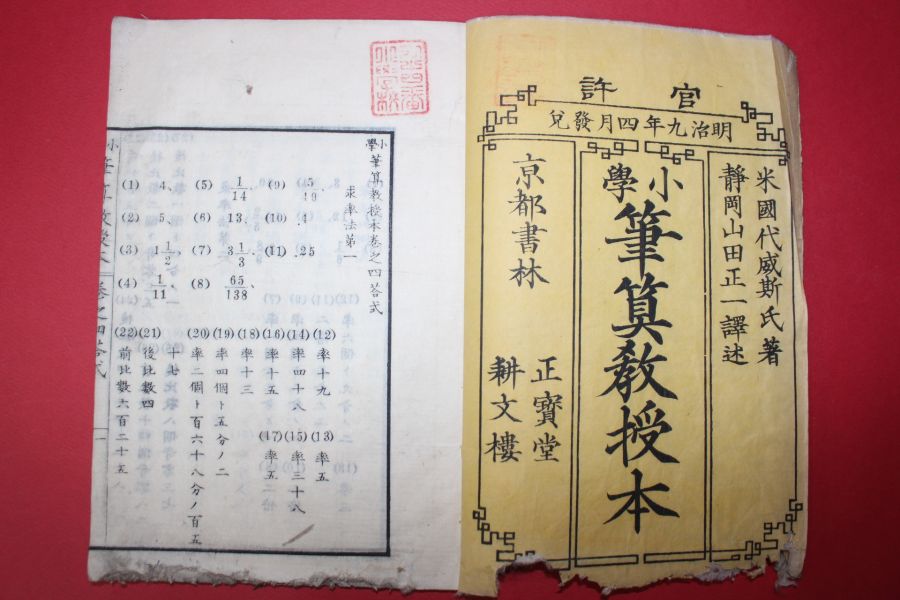 官許
明治九年四月發兌
米國代威斯氏著
靜岡山田正一譯述
小學筆算教授本
京都書林
正寳堂
耕文樓
小學筆算教授本卷之四荅式
求率法第一
(1) 4、 (5) 1/14、 (9) 5/49、
(2) 5、 (6) 13、 (10) .4、
(3) 1 1/2、 (7) 3 1/3、 (11) .25
(4) 1/11、 (8) 65/138、
(12) 率十九 (13) 率五
(14) 率四十八 (15) 率三十八
(16) 率十五 (17) 率五
(18) 率十三
(19) 率四個ト五分ノ二
(20) 率二個ト百六十八分ノ百五
十七
(21) 後比数四
(22) 前比数六百二十五
卷之四荅式